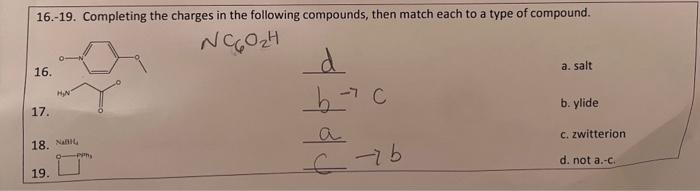 16.-19. Completing the charges in the following compounds, then match each to a type of compound.
NC6O2H
16. O N O d a. salt
H3N O O
17. b → c b. ylide
18. NaBH4 a c. zwitterion
19. O PPh3 c → b d. not a.-c.